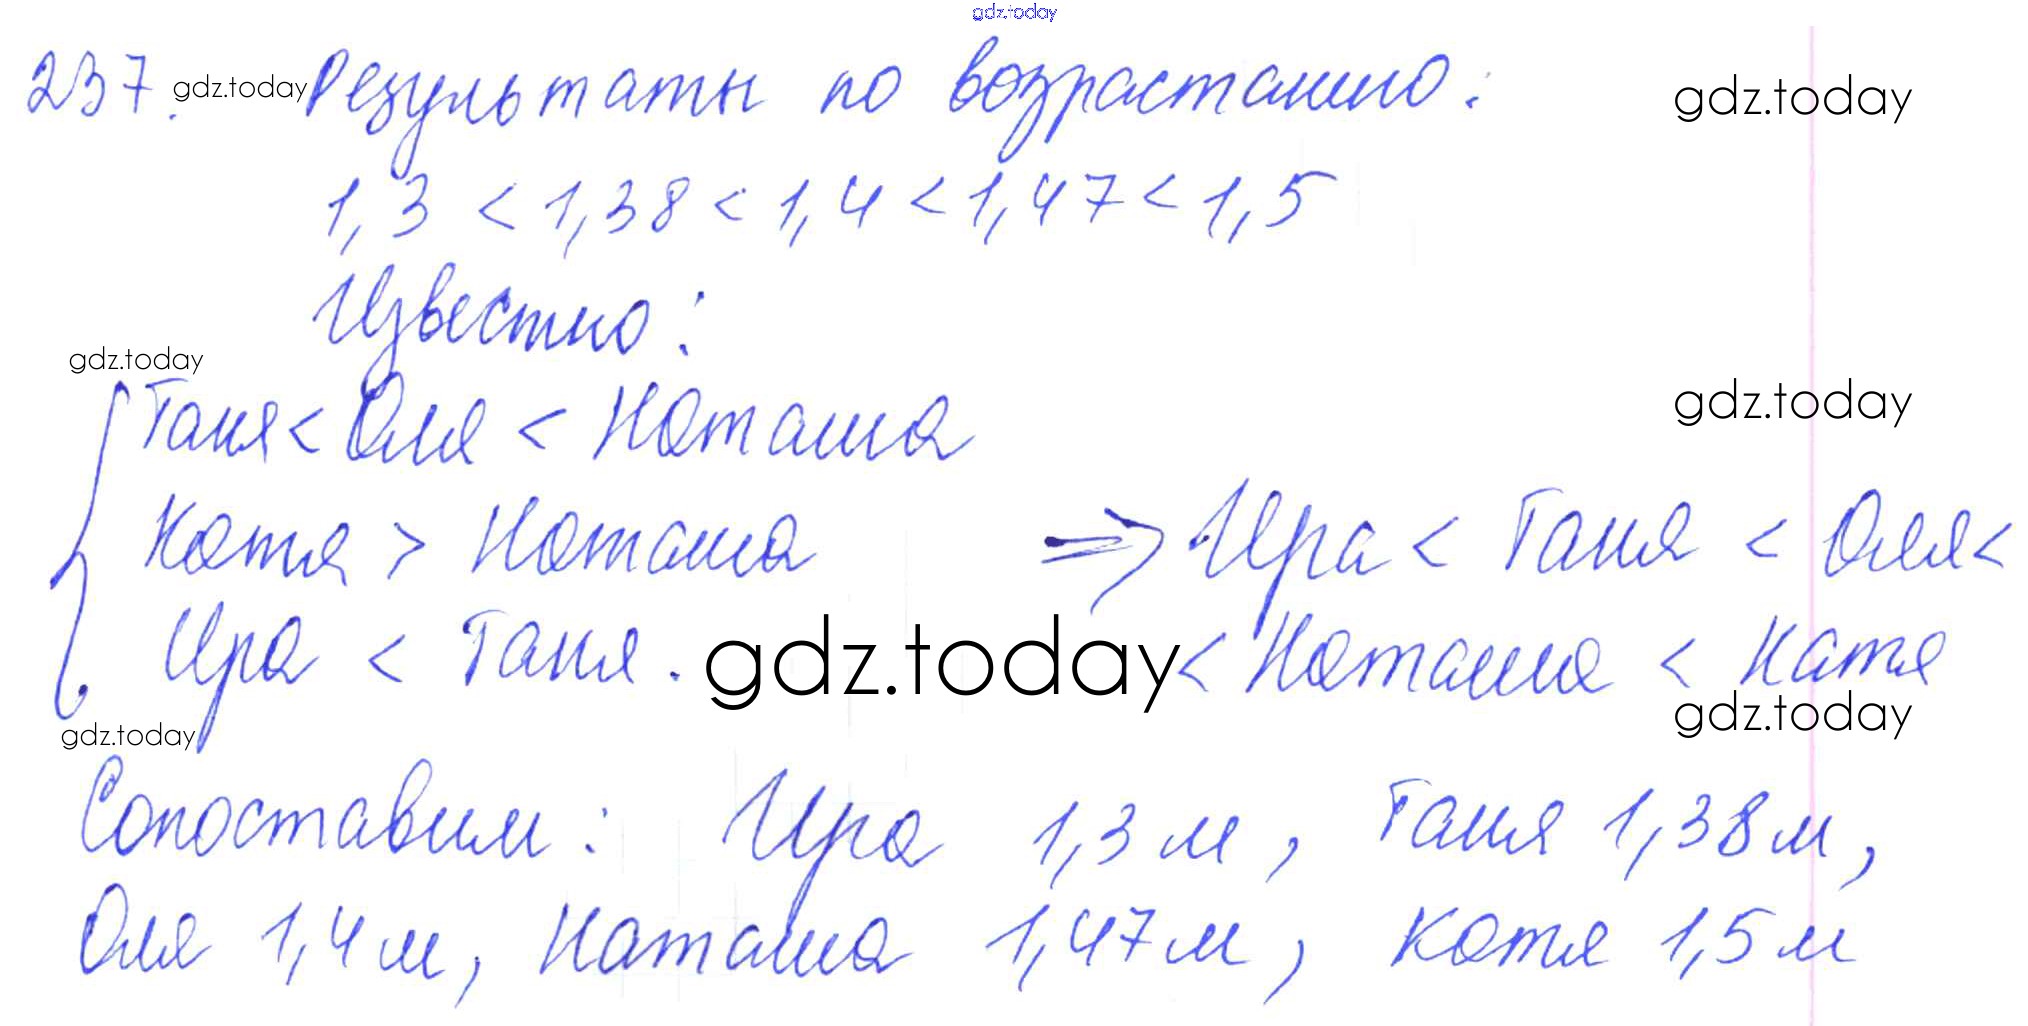 gdz.today
237. gdz.today Результаты по возрастанию: gdz.today
1,3 < 1,38 < 1,4 < 1,47 < 1,5
Известно:
gdz.today
Таня < Оля < Наташа gdz.today
Катя > Наташа => Ира < Таня < Оля <
Ира < Таня. gdz.today < Наташа < Катя
gdz.today gdz.today
Сопоставим: Ира 1,3 м, Таня 1,38 м,
Оля 1,4 м, Наташа 1,47 м, Катя 1,5 м